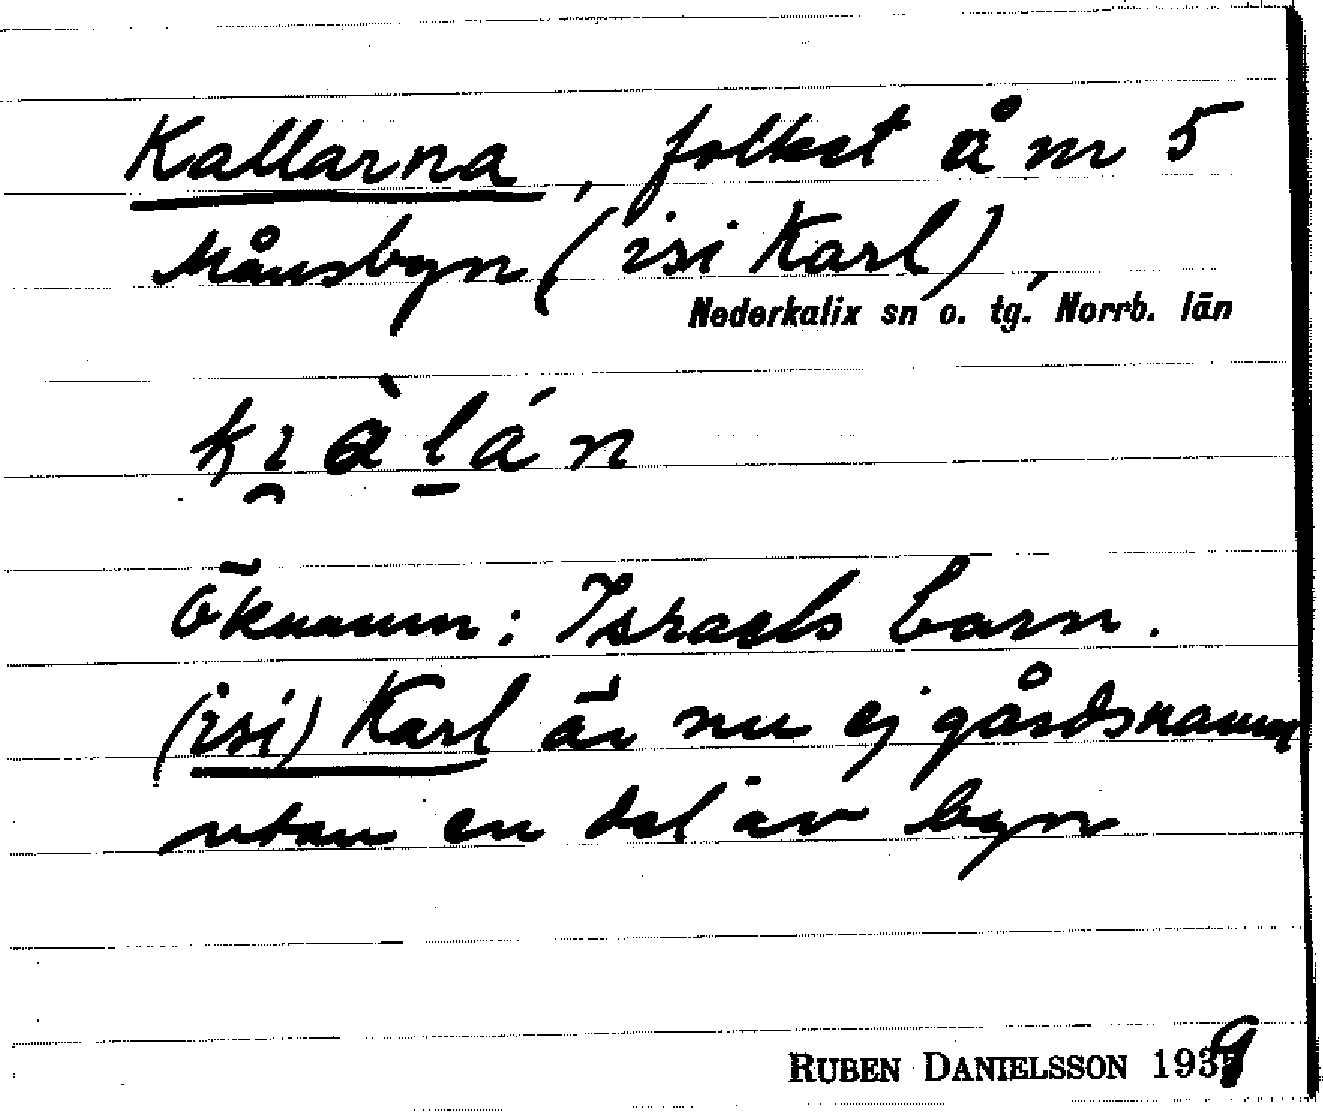 Kallarna, folket å nr 5
Månsbyn (isi Karl),
Nederkalix sn o. tg. Norrb. län
kı̯àl̠án
Öknamn: Israels barn.
(isi) Karl är nu ej gårdsnamn
utan en del av byn
RUBEN DANIELSSON 1939